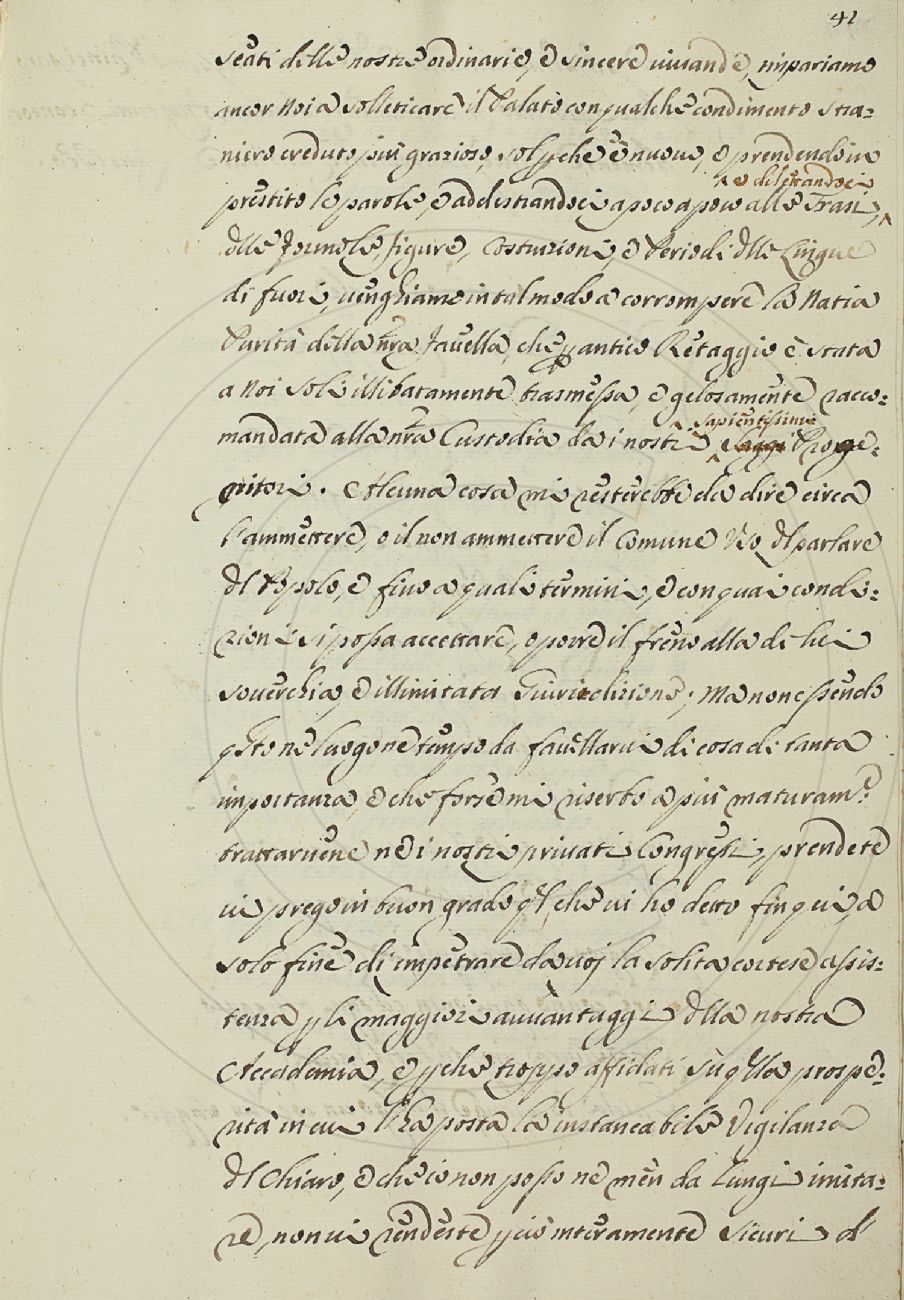 41
seati delle nostre ordinarie, e sincere uiuande, impariamo
ancor Noi a solleticare il Palato con qualche condimento stra=
niero creduto più grazioso, sol pche è nuouo, e prendendo in
e dilettandoci
prestito le parole, e addestrandoci a poco a poco alle Frasi,
dlle Formole, figure, Costuzioni, e Periodi dlle Lingue
di fuori, uenghiamo in tal modo a corrompere la Natia
Purità della nra Fauella, che p antico Retaggio è stata
a Noi soli illibatamente trasmessa, e gelosamente racco=
sapientissimi
mandata alla nra Custodia da i nostri Saggi Proge=
nitori. Alcuna cosa mi resterebbe da dire circa
l'ammettere, o il non ammettere il Comune Uso dl parlare
dl Popolo, e fino a quali termini, e con quai condi=
zioni si possa accettare, o porre il freno alla di lui
souerchia, e illimitata Giuridizione; Ma non essendo
qsto ne luogo ne tempo da fauellarui di cosa di tanta
importanza, e che forse mi riserbo a più maturamte
trattaruene ne i nostri priuati Congressi, prendete
ui prego in buon grado ql, che ui ho detto fin qui, a
solo fine di impetrare da uoj la solita cortese assis=
tenza p li maggiori auuantaggi dlla nostra
Accademia, e pche troppo affidati sù qlla prospe=
rità in cui l'ha posta la instancabile Vigilanza
dl Chiaro, e che io non posso ne men da lungi imita=
re, non ui rendeste pciò interamente sicuri di